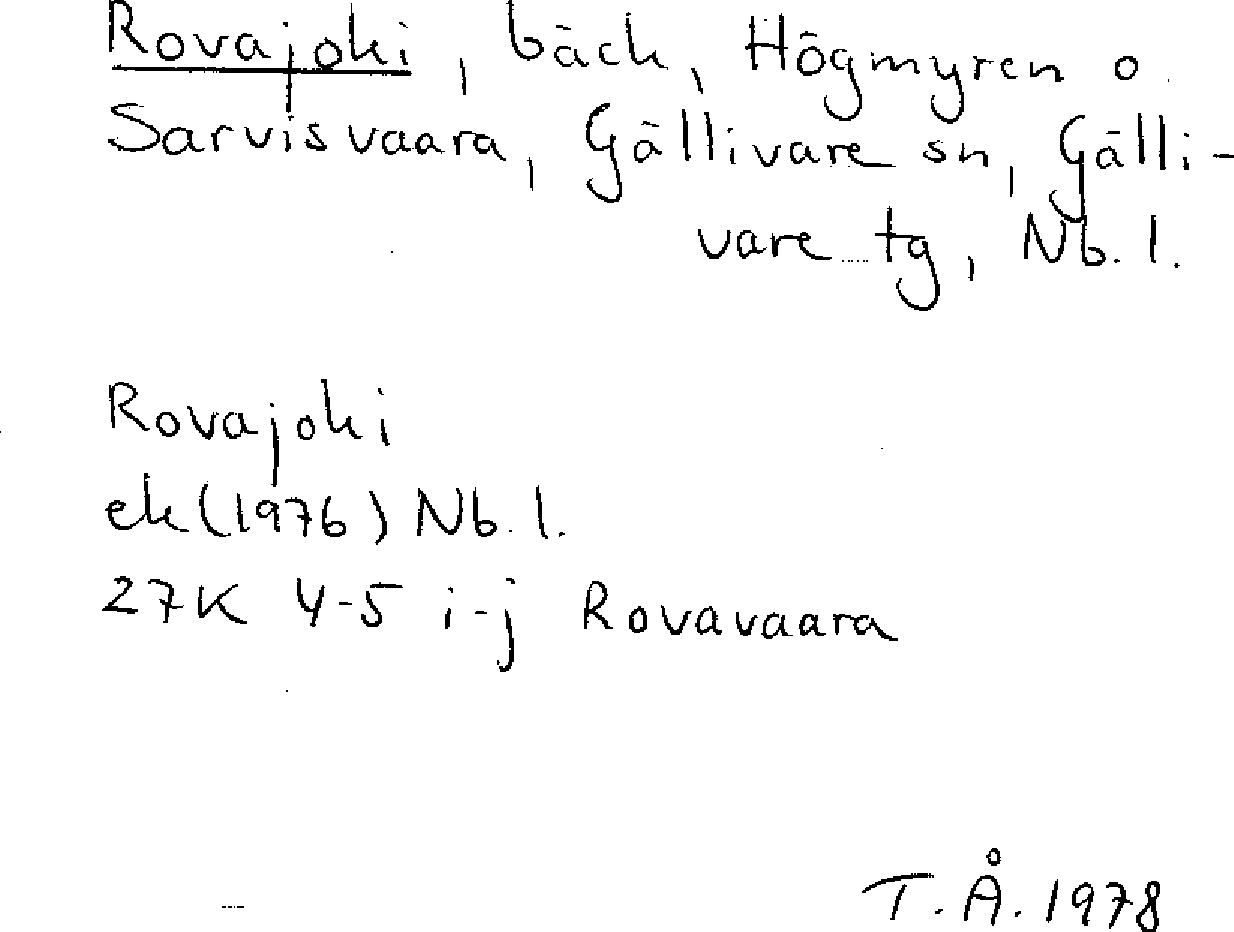 Rovajoki, bäck, Högmyren o.
Sarvisvaara, Gällivare sn, Gälli-
vare tg, Nb. l.
Rovajoki
ek (1976) Nb. l.
27K 4-5 i-j Rovavaara
T.Å. 1978